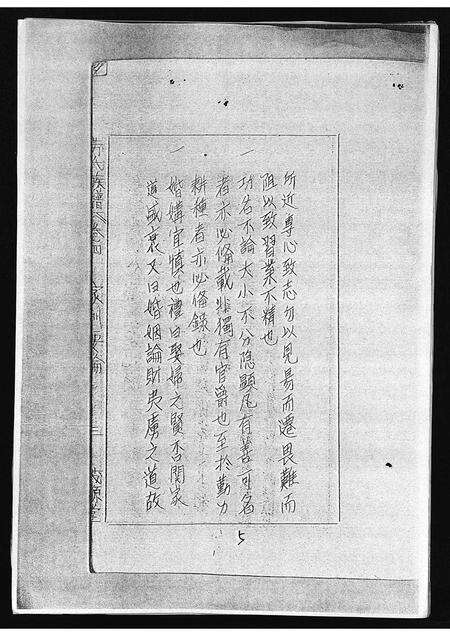 所近專心致志勿以見易而遷畏難而
阻以致習業不精也
一功名不論大小不分隐顯凡有善可名
者亦必備載非獨有官爵也至於勤力
耕種者亦必備錄也
一婚媾宜慎也禮曰娶婦之賢否關家
道盛衰又曰婚姻論財夷虜之道故
氏族譜卷四
5